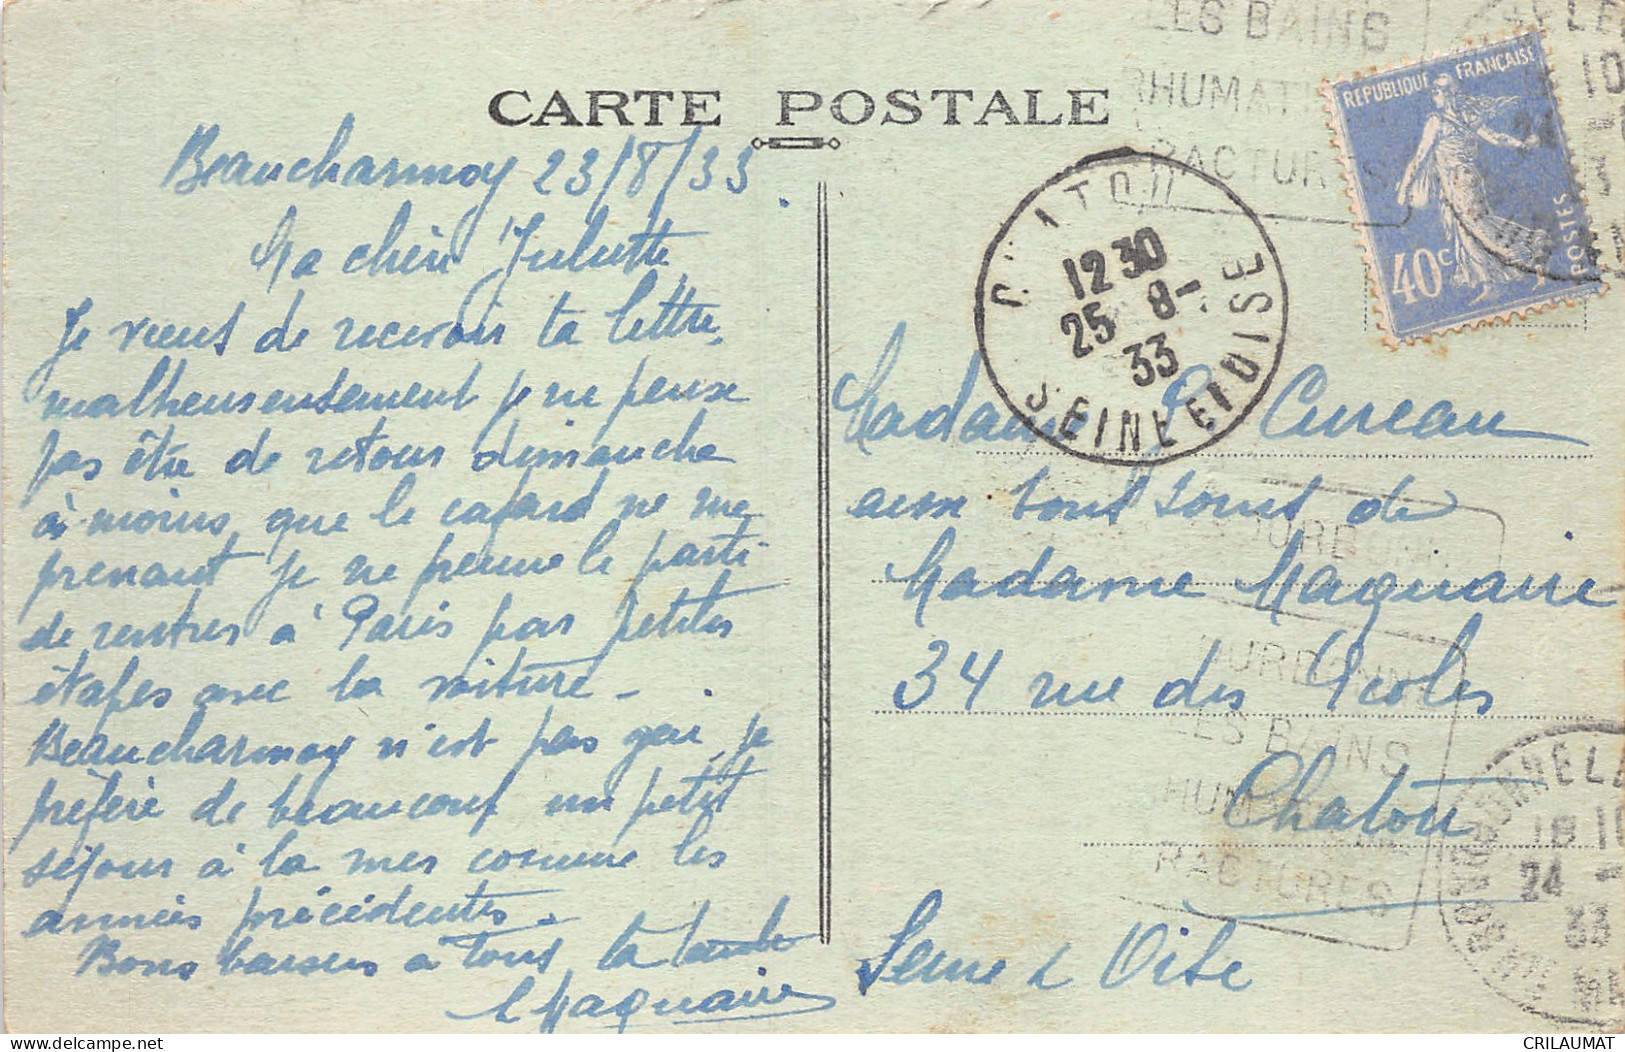 CARTE POSTALE
Beaucharmoy 23/8/33
Ma chère Juliette,
Je viens de recevoir ta lettre,
malheureusement je ne pense
pas être de retour dimanche
à moins que le cafard ne me
prenant je ne prenne le parti
de rentrer à Paris par petites
étapes avec la voiture -
Beaucharmoy n'est pas gai, je
préfère de beaucoup un petit
séjour à la mer comme les
années précédentes -
Bons baisers à tous, ta tante
Maquaire
LES BAINS
RHUMATI
RACTURES
RÉPUBLIQUE FRANÇAISE
POSTES
40c
CHATOU
12 30
25 8 -
33
SEINE ET OISE
Madame Cureau
aux bons soins de
Madame Maquaire
34 rue des Écoles
Chatou
Seine & Oise
OURBONNE
LES BAINS
HUMATISME
RACTURES
BOURBONNE LE
18 10
24 -
33
CRILAUMAT